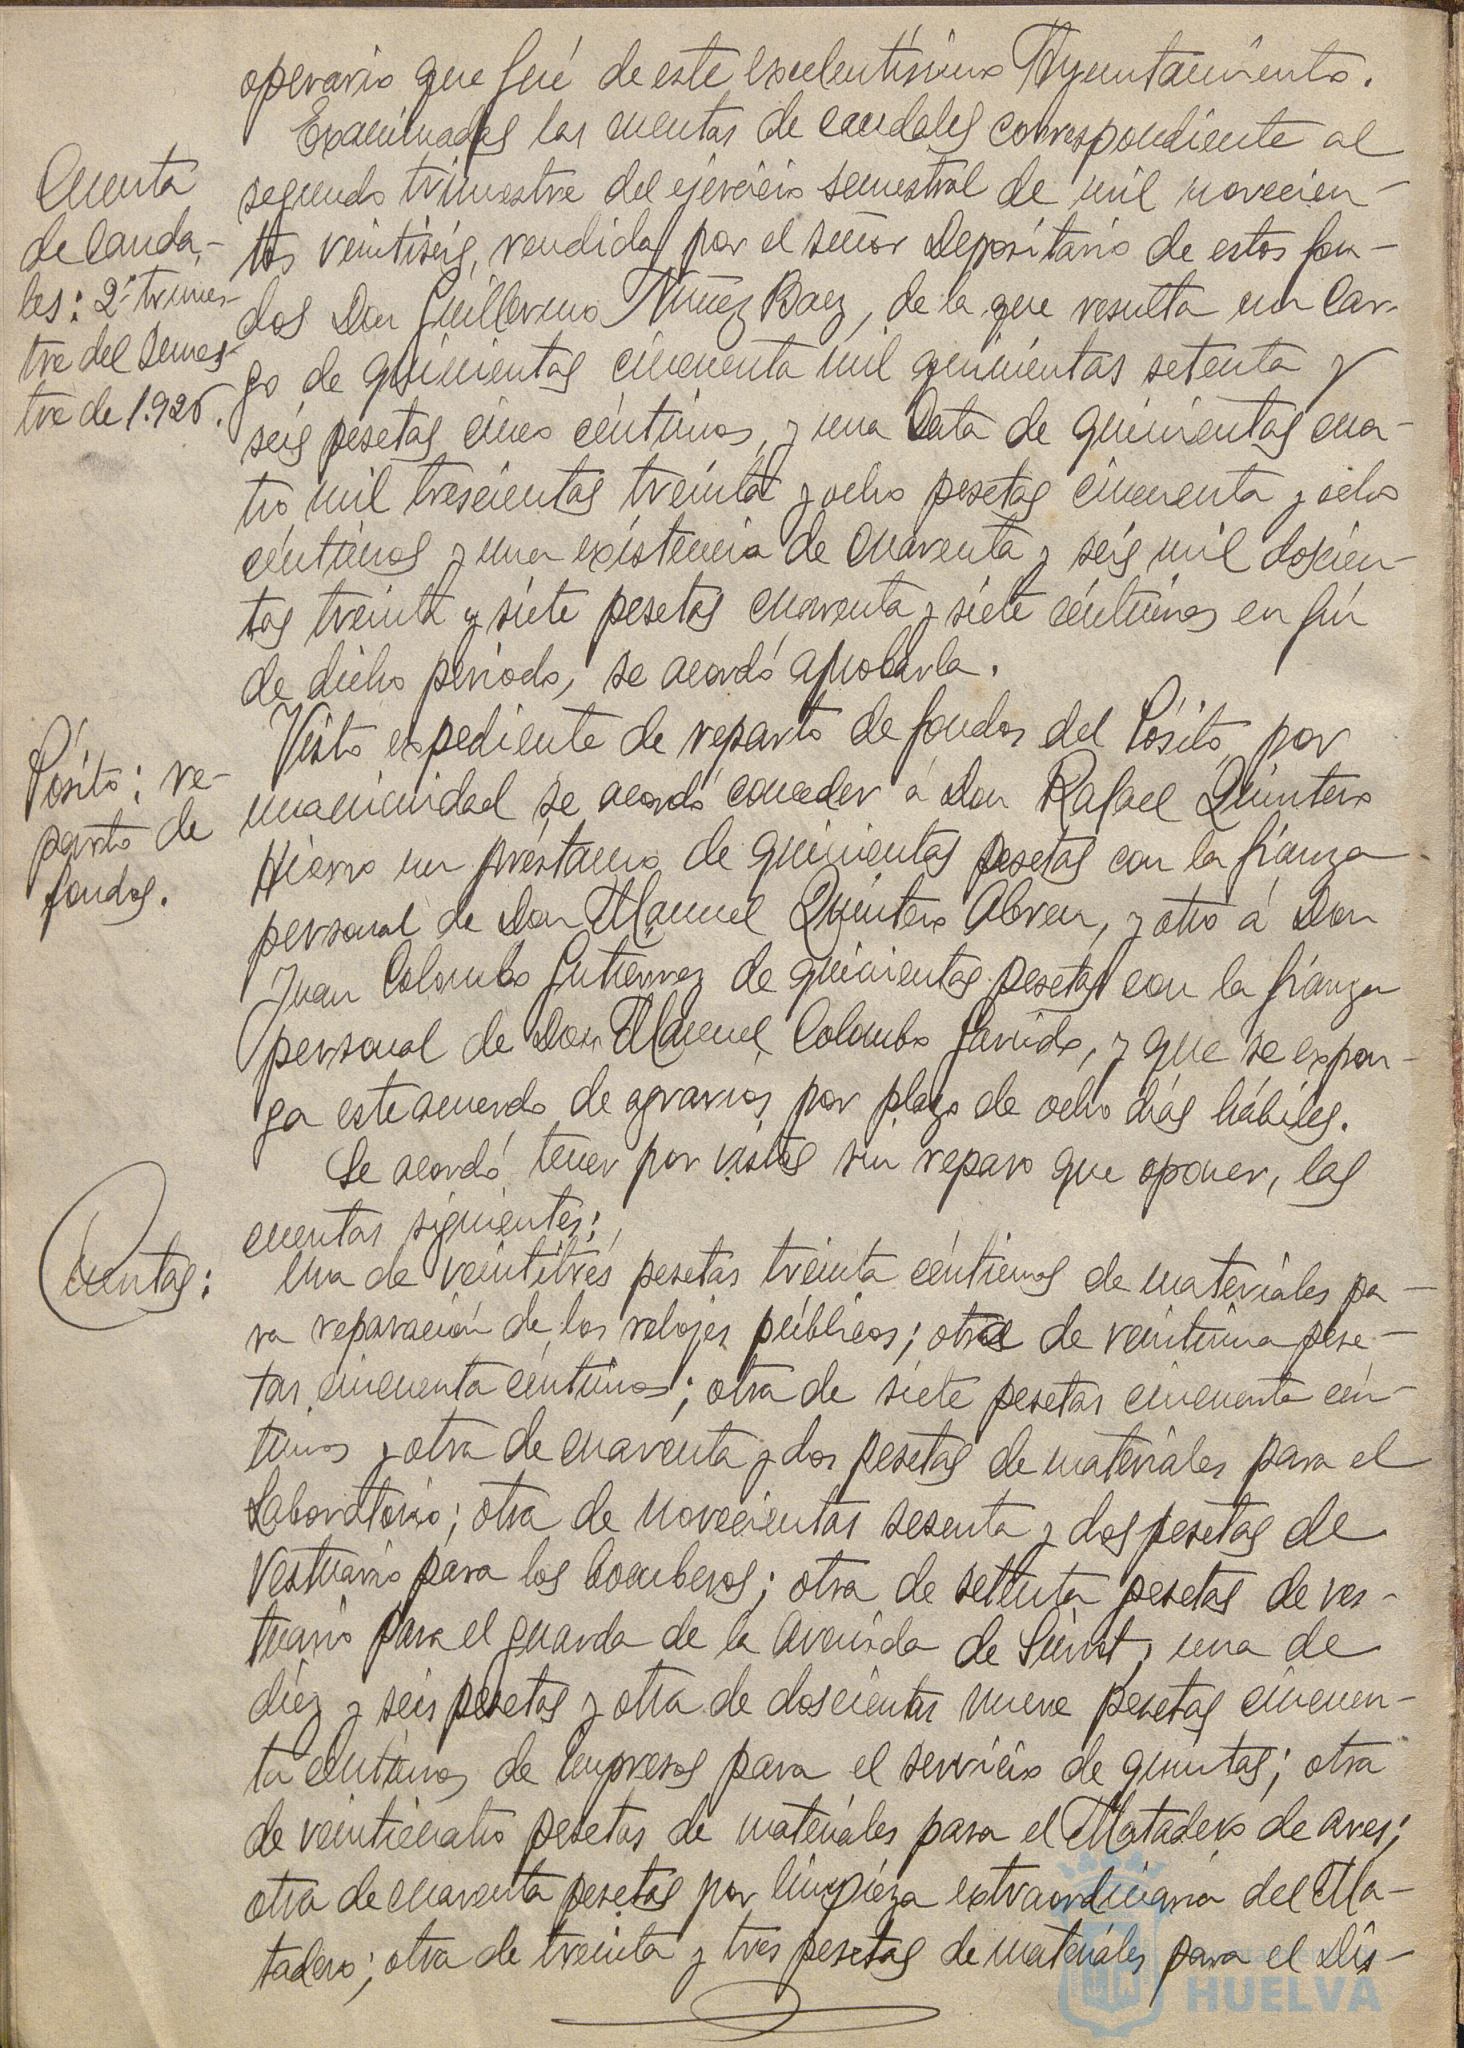 operario que fué de este excelentísimo Ayuntamiento.
Cuenta
de Cauda-
les: 2º trimes-
tre del Semes-
tre de 1.926.
Examinadas las cuentas de caudales correspondiente al
segundo trimestre del ejercicio semestral de mil novecien-
tos veintiséis, rendidas por el señor Depositario de estos fon-
dos Don Guillermo Núñez Baez, de la que resulta un Car-
go de quinientas cincuenta mil quinientas setenta y
seis pesetas cinco céntimos, y una Data de quinientas cua-
tro mil trescientas treinta y ocho pesetas cincuenta y ocho
céntimos y una existencia de cuarenta y seis mil doscien-
tas treinta y siete pesetas cuarenta y siete céntimos en fin
de dicho período, se acordó aprobarla.
Pósito: re-
parto de
fondos.
Visto expediente de reparto de fondos del Pósito, por
unanimidad se acordó conceder á Don Rafael Quintero
Hierro un préstamo de quinientas pesetas con la fianza
personal de Don Manuel Quintero Abreu, y otro á Don
Juan Colombo Gutierrez de quinientas pesetas con la fianza
personal de Don Manuel Colombo Garrido, y que se expon-
ga este acuerdo de agravios por plazo de ocho días hábiles.
Se acordó tener por vistas sin reparo que oponer, las
cuentas siguientes:
Cuentas:
Una de veintitrés pesetas treinta céntimos de materiales pa-
ra reparación de los relojes públicos; otra de veintiuna pese-
tas cincuenta céntimos; otra de siete pesetas cincuenta cén-
timos y otra de cuarenta y dos pesetas de materiales para el
Laboratorio; otra de novecientas sesenta y dos pesetas de
Vestuario para los bomberos; otra de setenta pesetas de ves-
tuario para el guarda de la Avenida de Siurot, una de
diez y seis pesetas y otra de doscientas nueve pesetas cincuen-
ta céntimos de impresos para el servicio de quintas; otra
de veinticuatro pesetas de materiales para el Matadero de aves;
otra de cuarenta pesetas por limpieza extraordinaria del Ma-
tadero; otra de treinta y tres pesetas de materiales para el Dis-
HUELVA